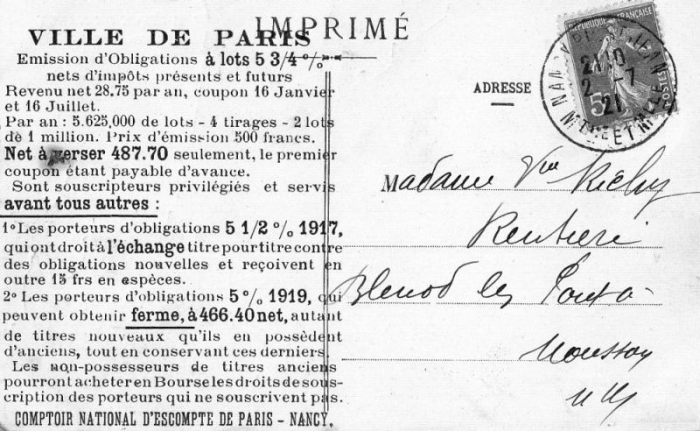 IMPRIMÉ
VILLE DE PARIS
Emission d'Obligations à lots 5 3/4 %
nets d'impôts présents et futurs
Revenu net 28.75 par an, coupon 16 Janvier
et 16 Juillet.
Par an : 5.625,000 de lots - 4 tirages - 2 lots
de 1 million. Prix d'émission 500 francs.
Net à verser 487.70 seulement, le premier
coupon étant payable d'avance.
Sont souscripteurs privilégiés et servis
avant tous autres :
1º Les porteurs d'obligations 5 1/2 % 1917,
qui ont droit à l'échange titre pour titre contre
des obligations nouvelles et reçoivent en
outre 13 frs en espèces.
2º Les porteurs d'obligations 5 % 1919, qui
peuvent obtenir ferme, à 466.40 net, autant
de titres nouveaux qu'ils en possèdent
d'anciens, tout en conservant ces derniers.
Les non-possesseurs de titres anciens
pourront acheter en Bourse les droits de sous-
cription des porteurs qui ne souscrivent pas.
COMPTOIR NATIONAL D'ESCOMPTE DE PARIS - NANCY.
ADRESSE
REPUBLIQUE FRANÇAISE
POSTES
5c
21
Madame Vve Richy
Rentière
Blenod les Pont à
Mousson
M M